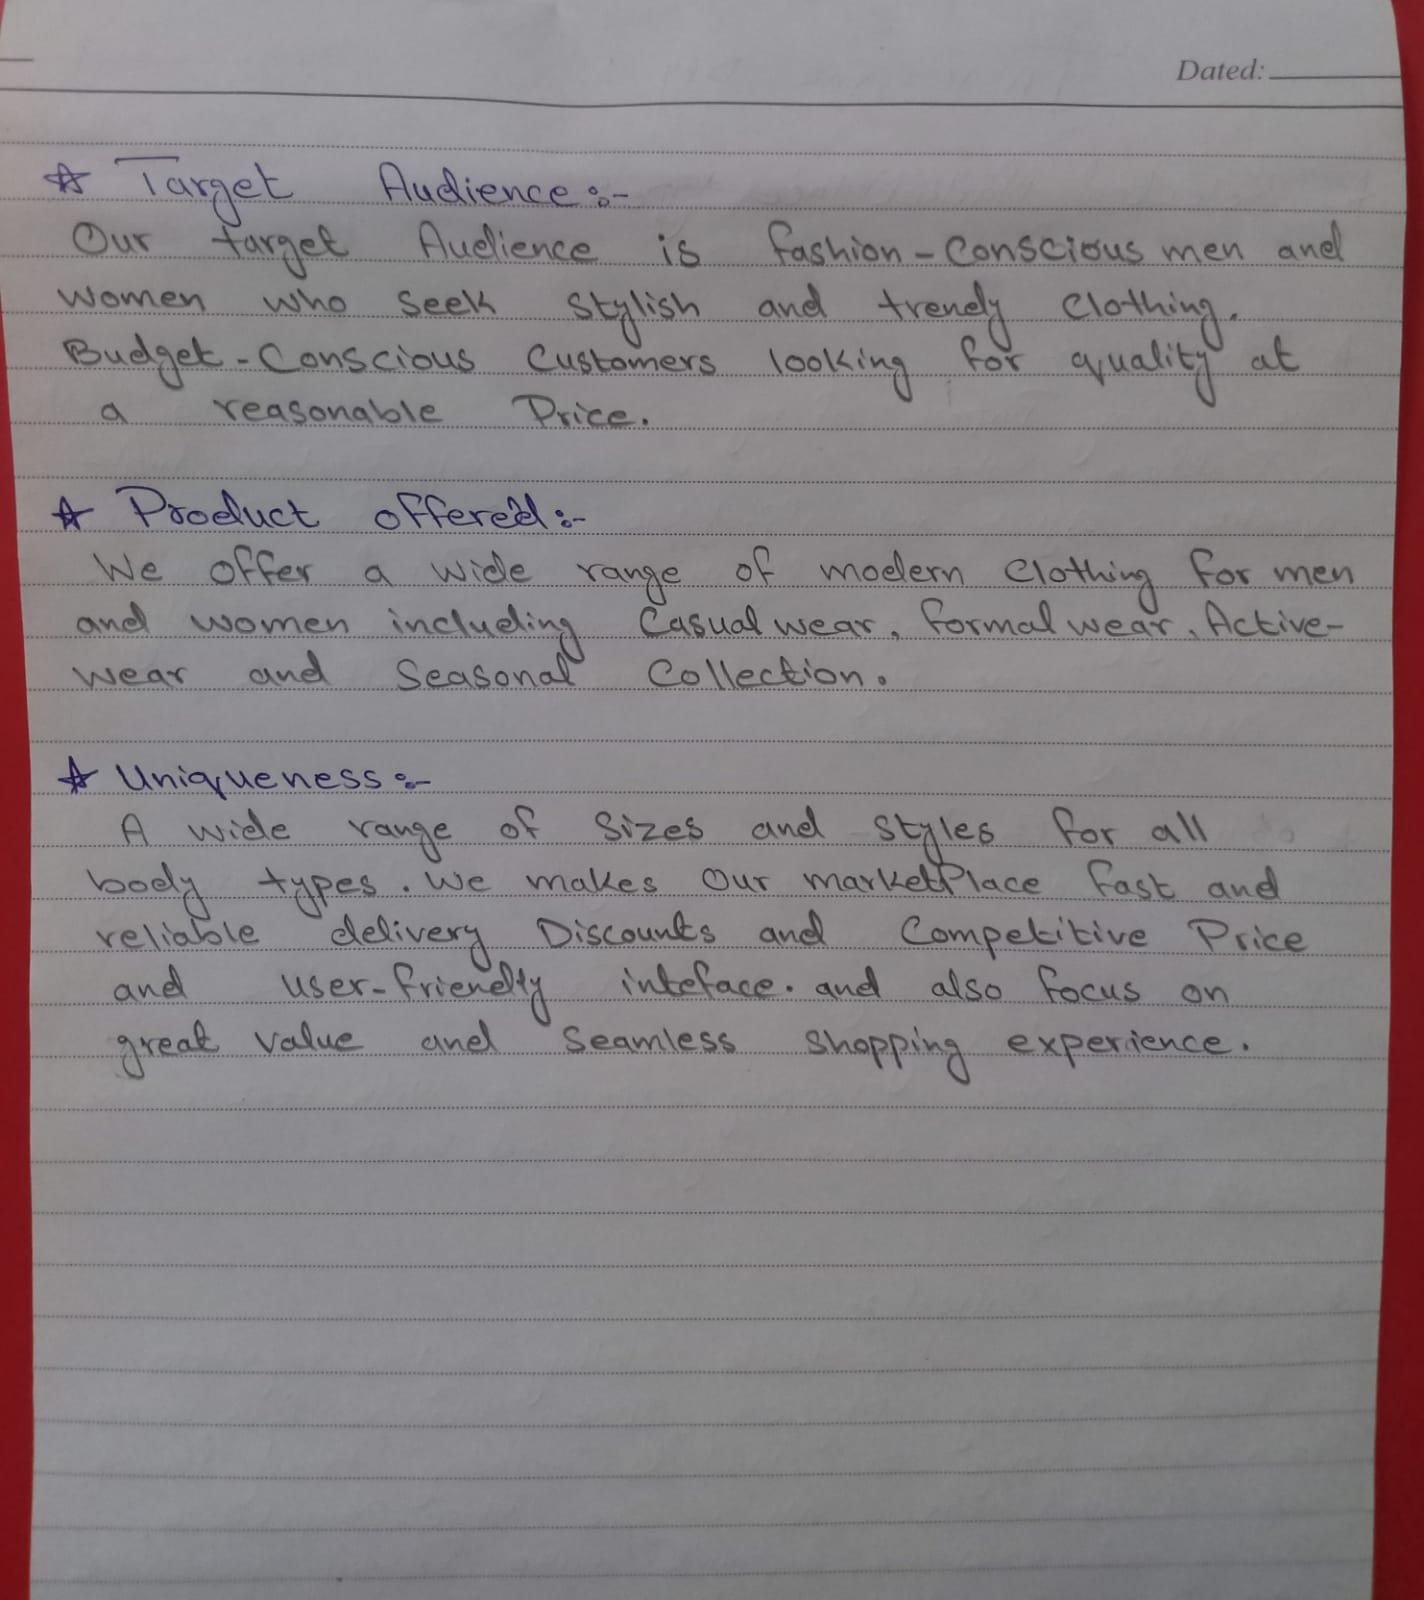 Dated:
☆ Target Audience:-
Our target Audience is fashion-Conscious men and
women who seek stylish and trendy clothing.
Budget-Conscious Customers looking for quality at
a reasonable Price.
☆ Product offered:-
We offer a wide range of modern clothing for men
and women including Casual wear, formal wear, Active-
wear and Seasonal Collection.
☆ Uniqueness:-
A wide range of Sizes and styles for all
body types. We makes our marketPlace fast and
reliable delivery Discounts and Competitive Price
and user-friendly inteface. and also focus on
great value and Seamless shopping experience.